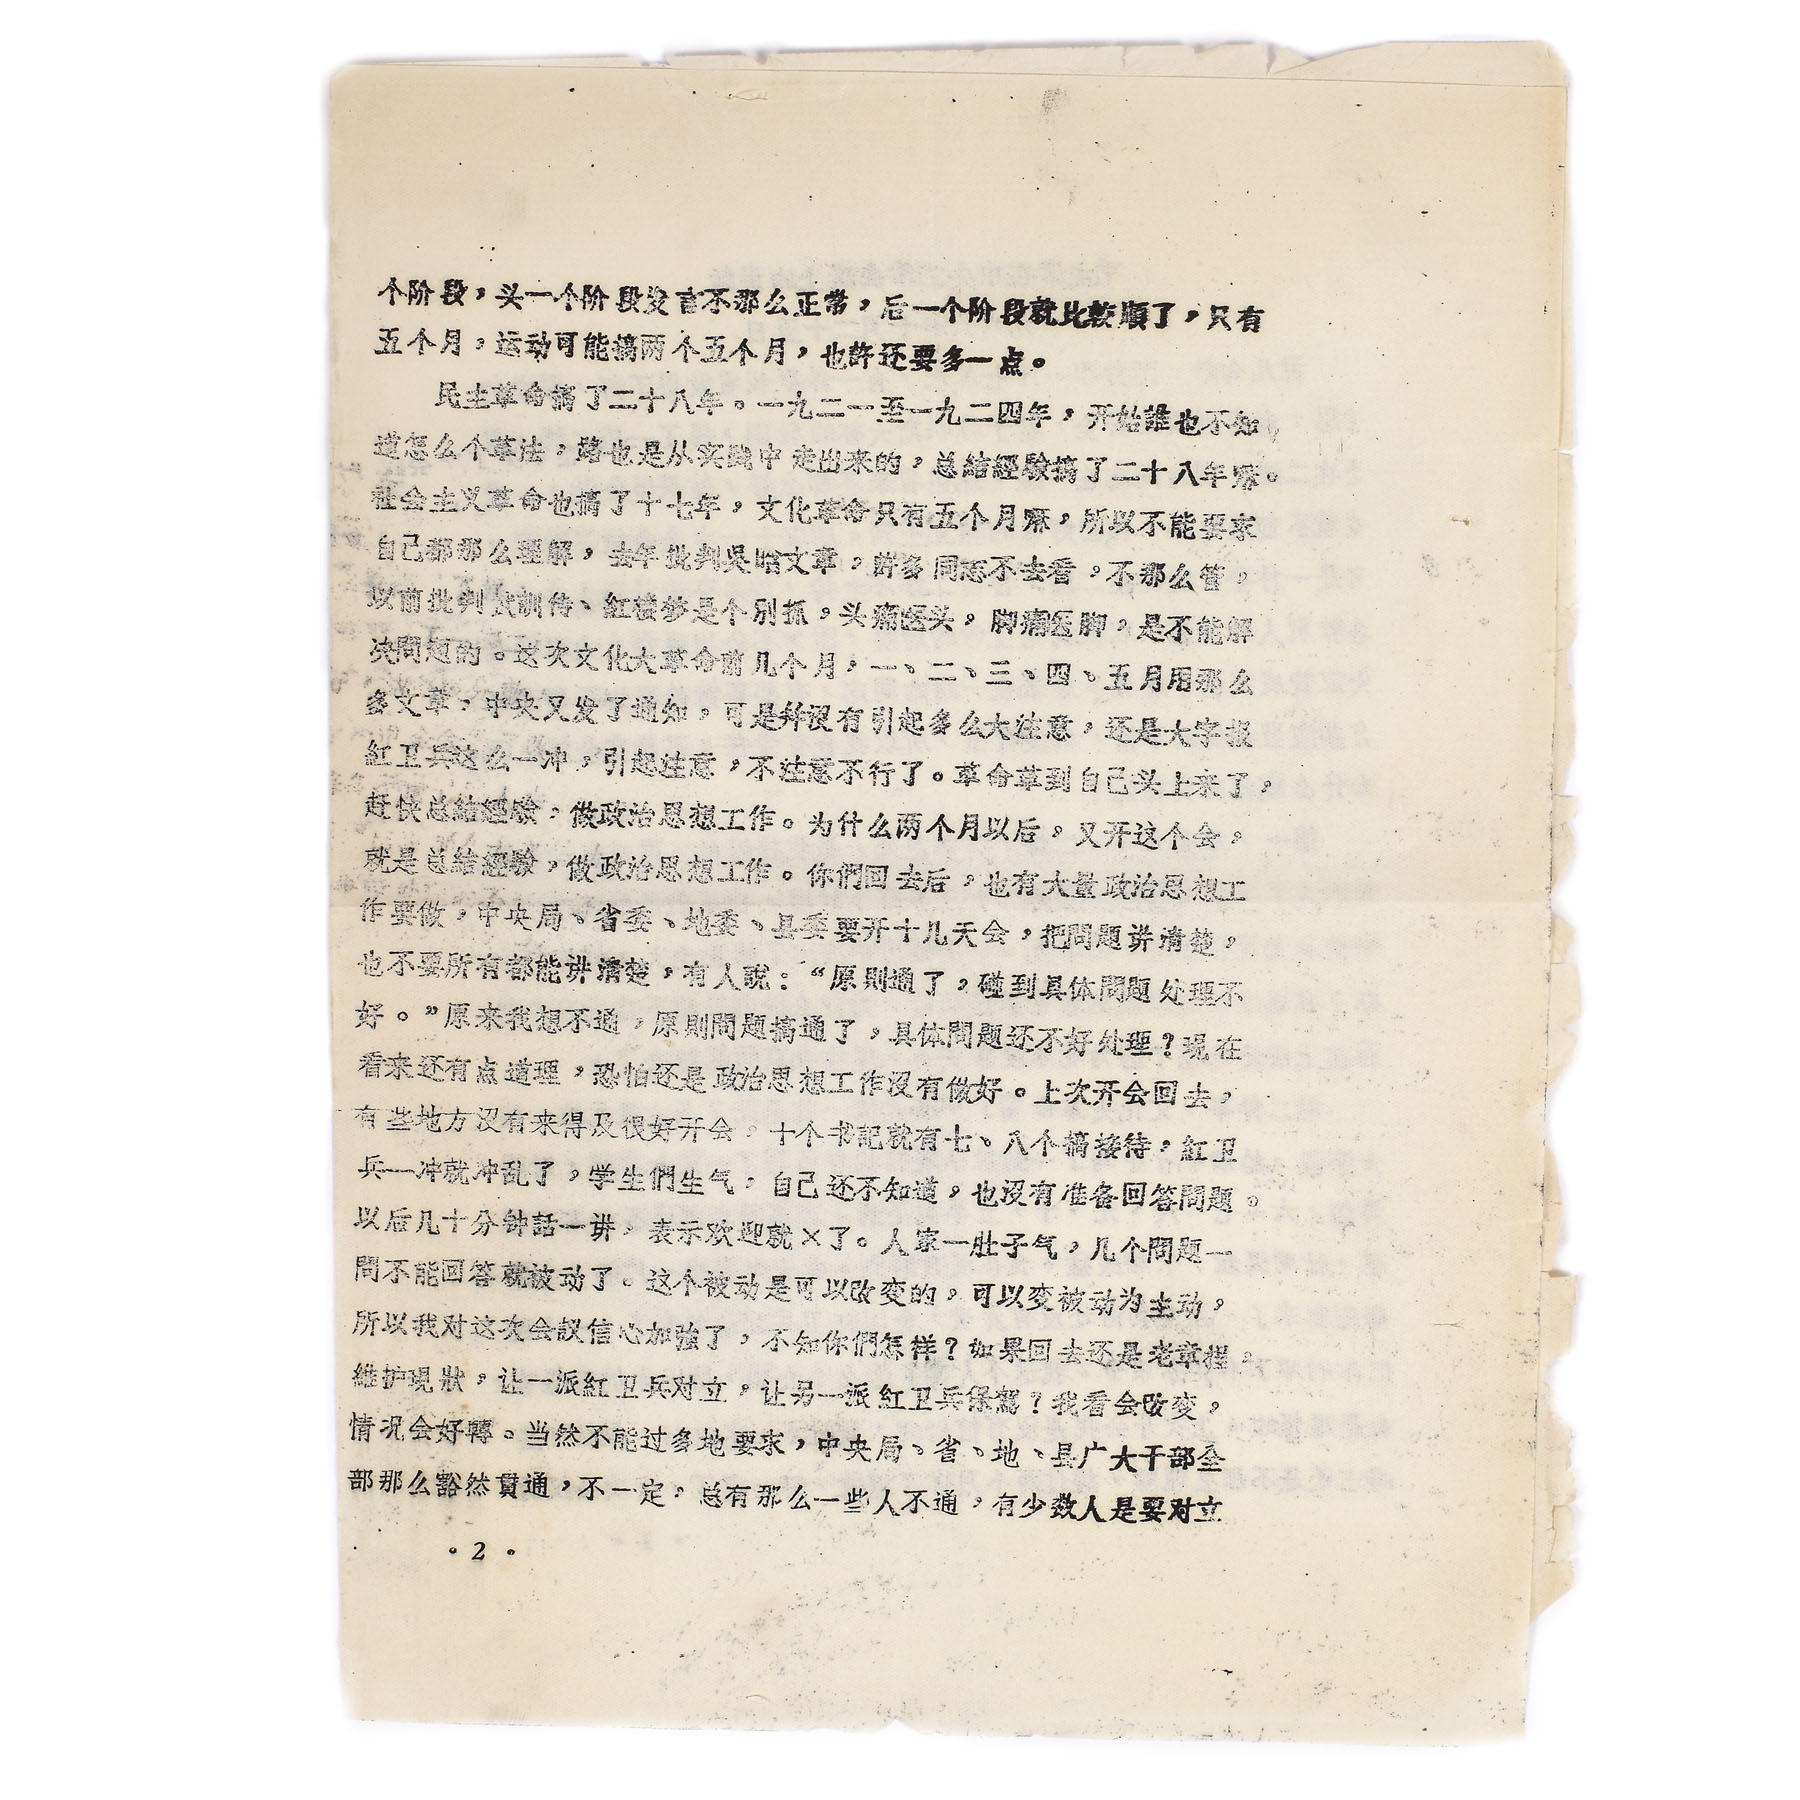 个阶段，头一个阶段发言不那么正常，后一个阶段就比較順了，只有
五个月，运动可能搞两个五个月，也許还要多一点。
民主革命搞了二十八年。一九二一至一九二四年，开始誰也不知
道怎么个革法，路也是从实践中走出来的，总結經驗搞了二十八年嘛。
社会主义革命也搞了十七年，文化革命只有五个月嘛，所以不能要求
自己都那么理解，去年批判吳晗文章，許多同志不去看，不那么管，
以前批判武訓传、紅楼梦是个別抓，头痛医头，脚痛医脚，是不能解
决問題的。这次文化大革命前几个月，一、二、三、四、五月用那么
多文章，中央又发了通知，可是幷沒有引起多么大注意，还是大字报
紅卫兵这么一冲，引起注意，不注意不行了。革命革到自己头上来了，
赶快总結經驗，做政治思想工作。为什么两个月以后，又开这个会，
就是总結經驗，做政治思想工作。你們回去后，也有大量政治思想工
作要做，中央局、省委、地委、县委要开十几天会，把問題讲清楚，
也不要所有都能讲清楚，有人說：“原則通了，碰到具体問題处理不
好。”原来我想不通，原則問題搞通了，具体問題还不好处理？現在
看来还有点道理，恐怕还是政治思想工作沒有做好。上次开会回去，
有些地方沒有来得及很好开会，十个书記就有七、八个搞接待，紅卫
兵一冲就冲乱了，学生們生气，自己还不知道，也沒有准备回答問題。
以后几十分钟話一讲，表示欢迎就×了。人家一肚子气，几个問題一
問不能回答就被动了。这个被动是可以改变的，可以变被动为主动，
所以我对这次会議信心加強了，不知你們怎样？如果回去还是老章程，
維护現狀，让一派紅卫兵对立，让另一派紅卫兵保駕？我看会改变，
情况会好轉。当然不能过多地要求，中央局、省、地、县广大干部全
部那么豁然貫通，不一定，总有那么一些人不通，有少数人是要对立
·2·